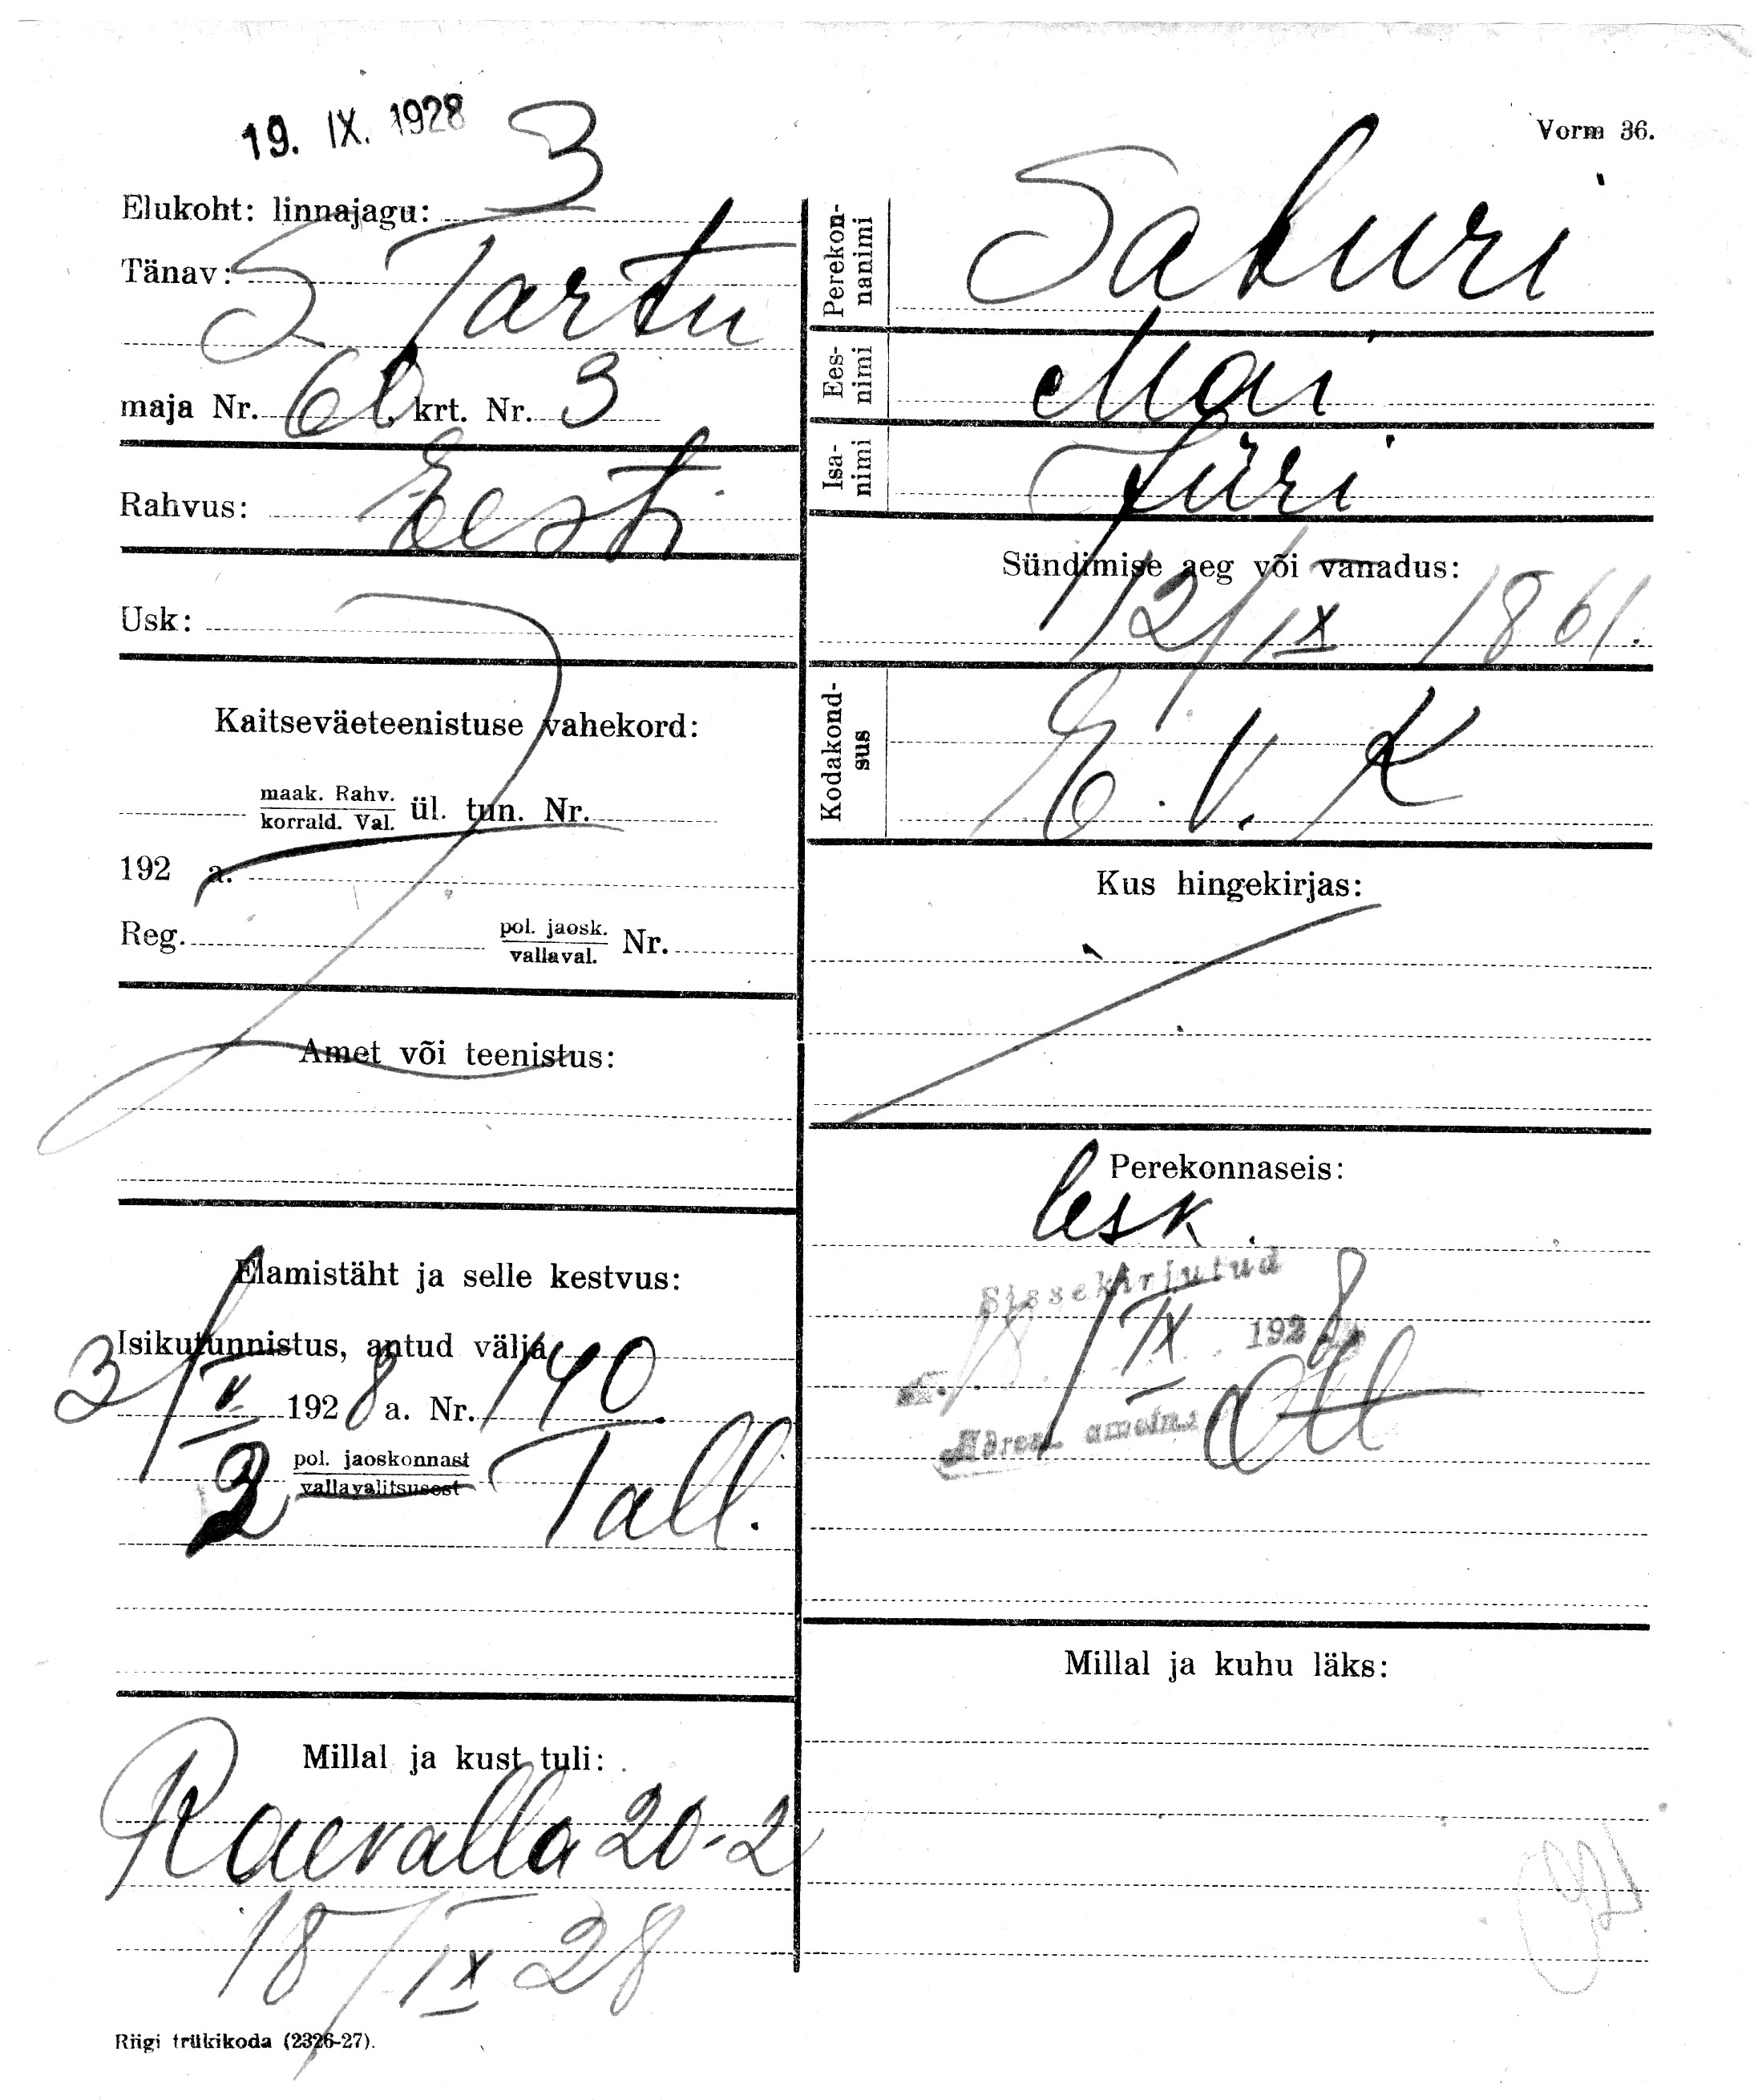 19. IX. 1928
Elukoht: linnajagu: 3
Tänav: S. Tartu
maja Nr. 6b krt. Nr. 3
Rahvus: Eesti
Usk:
Kaitseväeteenistuse vahekord:
maak. Rahv.
korrald. Val. ül. tun. Nr.
192 a.
Reg. pol. jaosk.
vallaval. Nr.
Amet või teenistus:
Elamistäht ja selle kestvus:
Isikutunnistus, antud välja
3/V 1928 a. Nr. 140.
2 pol. jaoskonnast Tall.
vallavalitsusest
Millal ja kust tuli:
Raevalla 20-2
18/IX 28
Riigi trükikoda (2326-27).
Vorm 36.
Perekon-
nanimi Sakuri
Ees-
nimi Mai
Isa-
nimi Jüri
Sündimise aeg või vanadus:
12/IX 1861.
Kodakond-
sus E. V. K
Kus hingekirjas:
Perekonnaseis:
lesk.
Sissekirjutud
18/IX 1928
Millal ja kuhu läks: